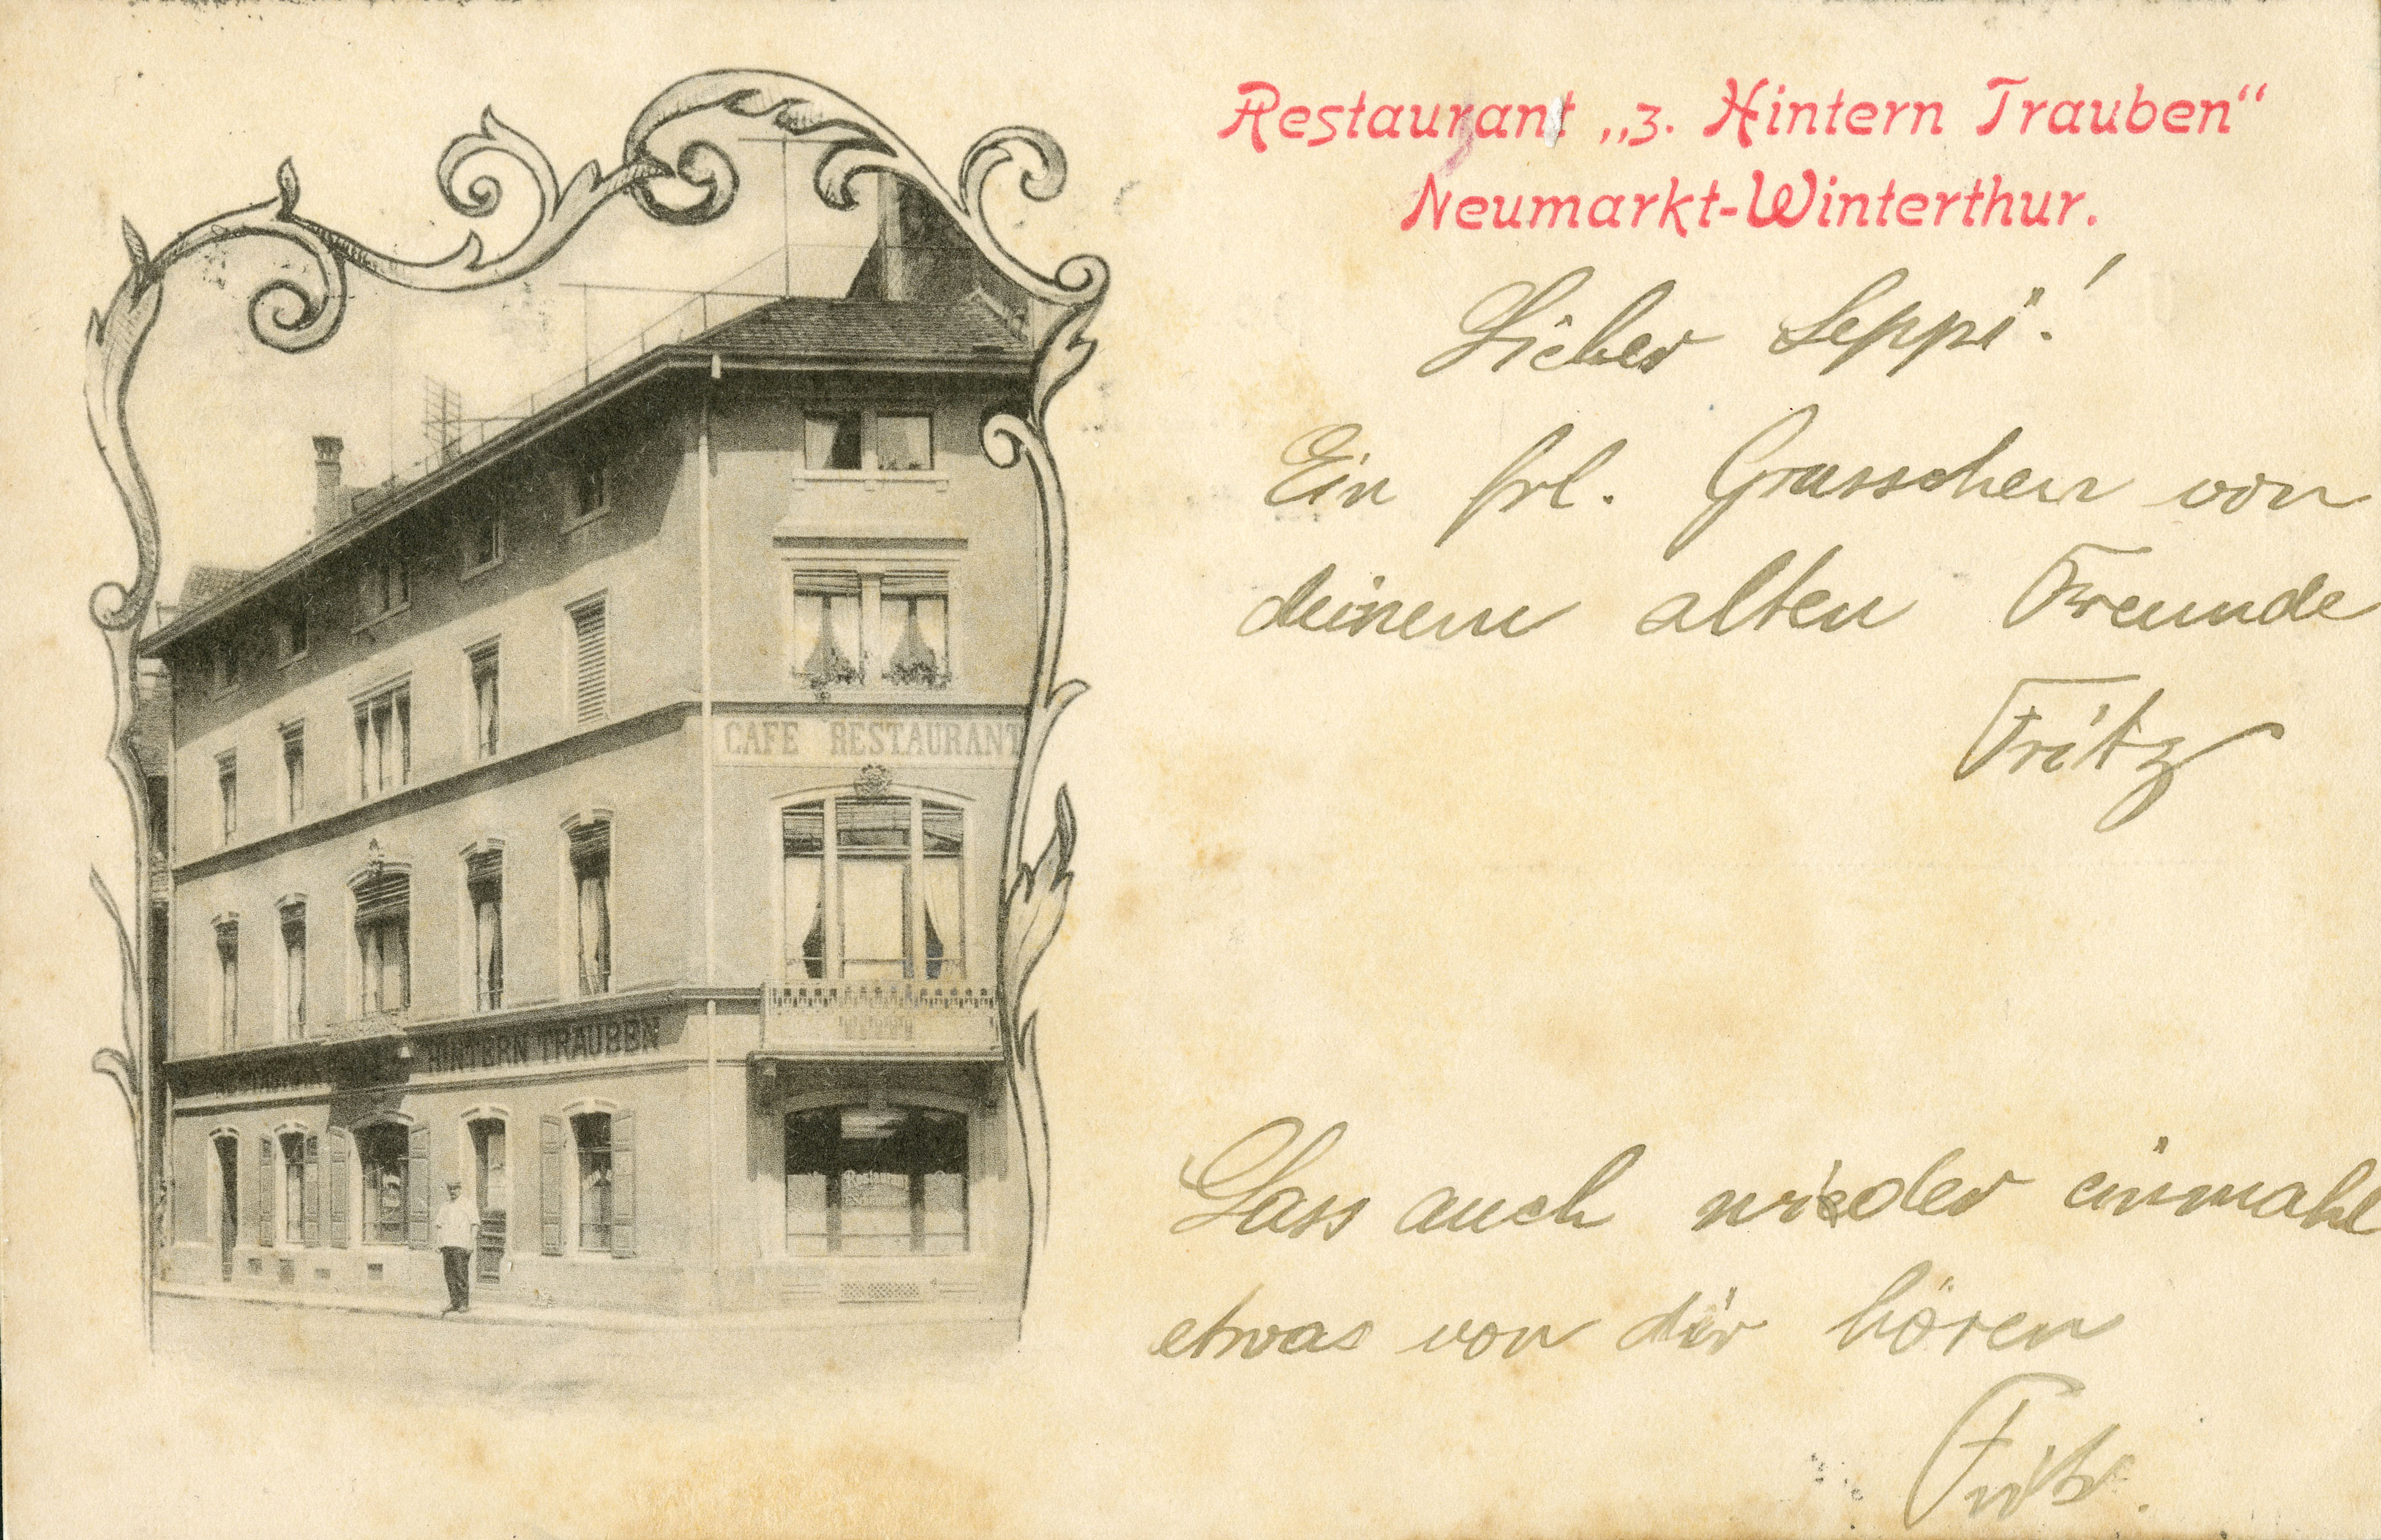 Restaurant „z. Hintern Trauben“
Neumarkt-Winterthur.
Lieber Seppi!
Ein frl. Grusschen von
deinem alten Freunde
Fritz
CAFE RESTAURANT
HINTERN TRAUBEN
Restaurant
Lass auch wieder einmahl
etwas von dir hören
Fritz.